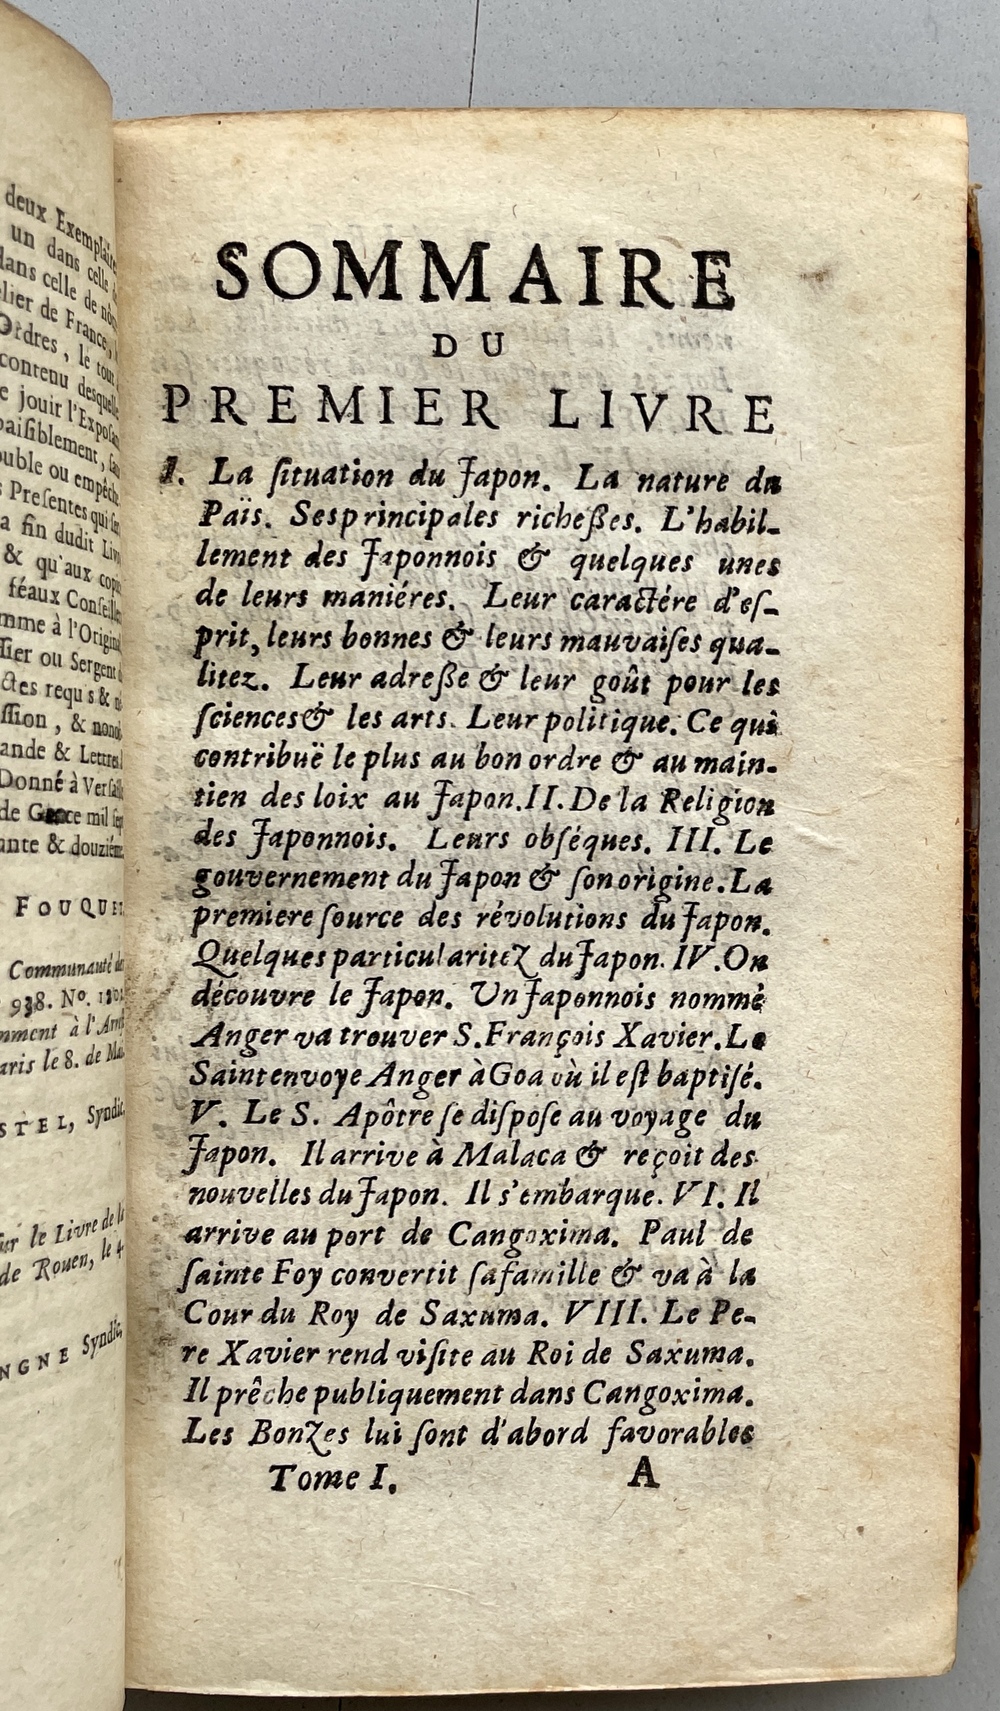 deux Exemplaires
un dans celle
dans celle de nôt
elier de France,
Ordres, le tout
contenu desquel
e jouir l'Exposan
paisiblement, san
ouble ou empêch
s Preſentes qui ſe
a fin dudit Liv
& qu'aux copi
féaux Conſeille
mme à l'Origina
ſſier ou Sergent
ctes requis &
ſſion, & nonob
ande & Lettres
Donné à Verſaill
de Grace mil ſep
ante & douziém
FOUQUET
Communauté de
938. No.
mment à l'Arreſt
aris le 8. de Mai
STEL, Syndic.
ſur le Livre de la
de Rouen, le 4.
NGNE Syndic.
SOMMAIRE
DU
PREMIER LIVRE
I. La ſituation du Japon. La nature du
Païs. Sesprincipales richeſſes. L'habil-
lement des Japonnois & quelques unes
de leurs maniéres. Leur caractére d'eſ-
prit, leurs bonnes & leurs mauvaiſes qua-
litez. Leur adreſſe & leur goût pour les
ſciences & les arts. Leur politique. Ce qui
contribuë le plus au bon ordre & au main-
tien des loix au Japon. II. De la Religion
des Japonnois. Leurs obſéques. III. Le
gouvernement du Japon & ſon origine. La
premiere ſource des révolutions du Japon.
Quelques particularitez du Japon. IV. On
découvre le Japon. Un Japonnois nommé
Anger va trouver S. François Xavier. Le
Saint envoye Anger à Goa où il eſt baptiſé.
V. Le S. Apôtre ſe diſpoſe au voyage du
Japon. Il arrive à Malaca & reçoit des
nouvelles du Japon. Il s'embarque. VI. Il
arrive au port de Cangoxima. Paul de
ſainte Foy convertit ſa famille & va à la
Cour du Roy de Saxuma. VIII. Le Pe-
re Xavier rend viſite au Roi de Saxuma.
Il prêche publiquement dans Cangoxima.
Les Bonzes lui ſont d'abord favorables
Tome I. A